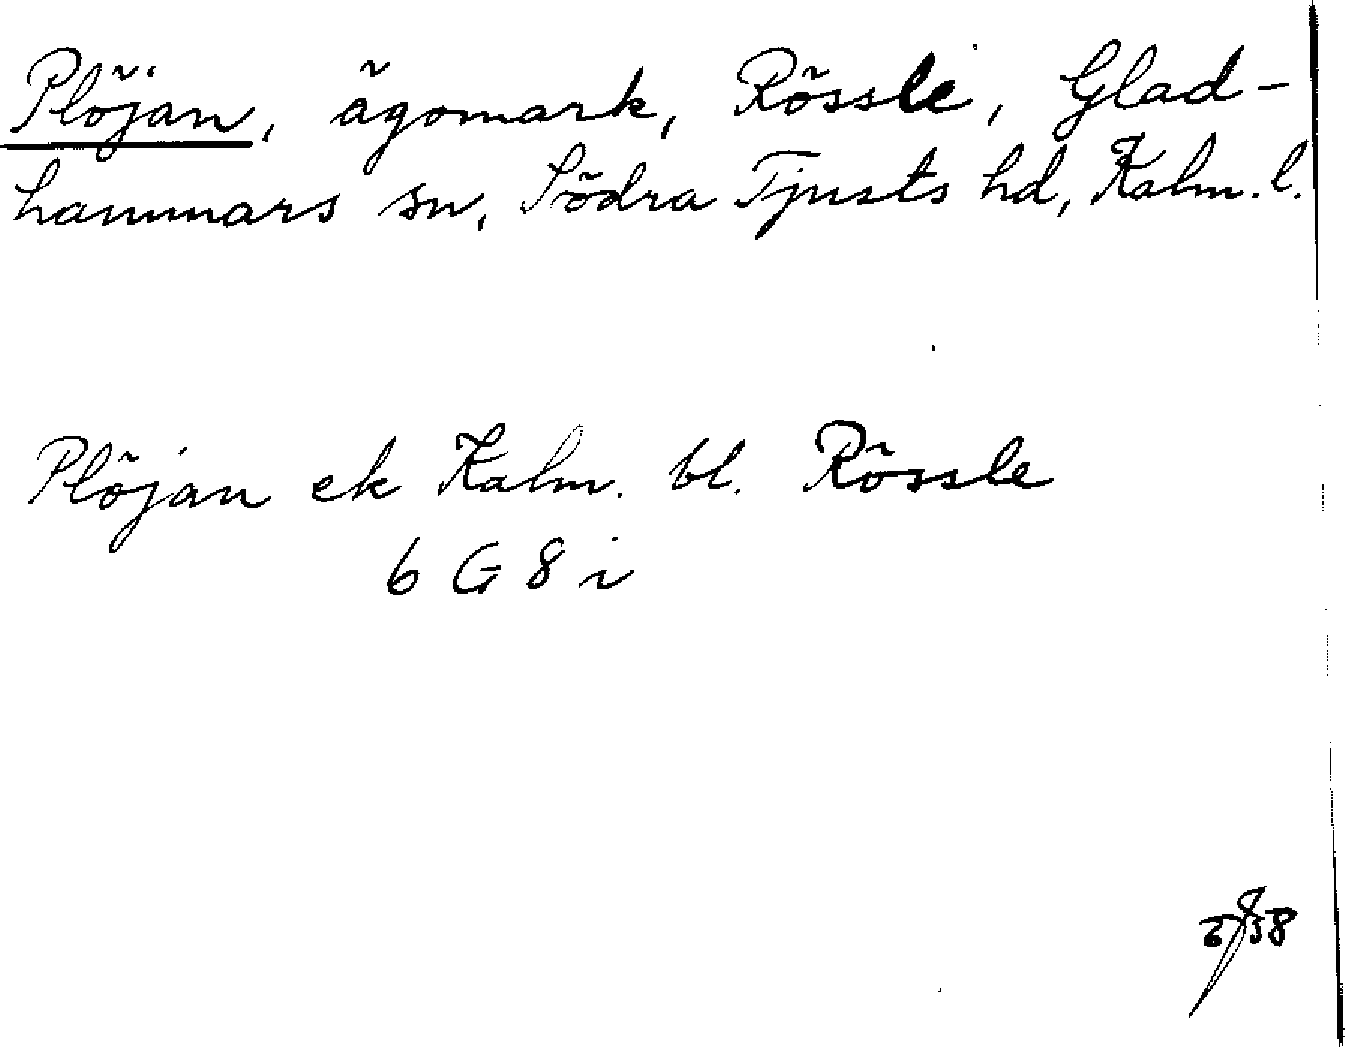 Plöjan, ägomark, Rössle, Glad-
hammars sn, Södra Tjusts hd, Kalm. l.
Plöjan ek Kalm. bl. Rössle
6 G 8 i